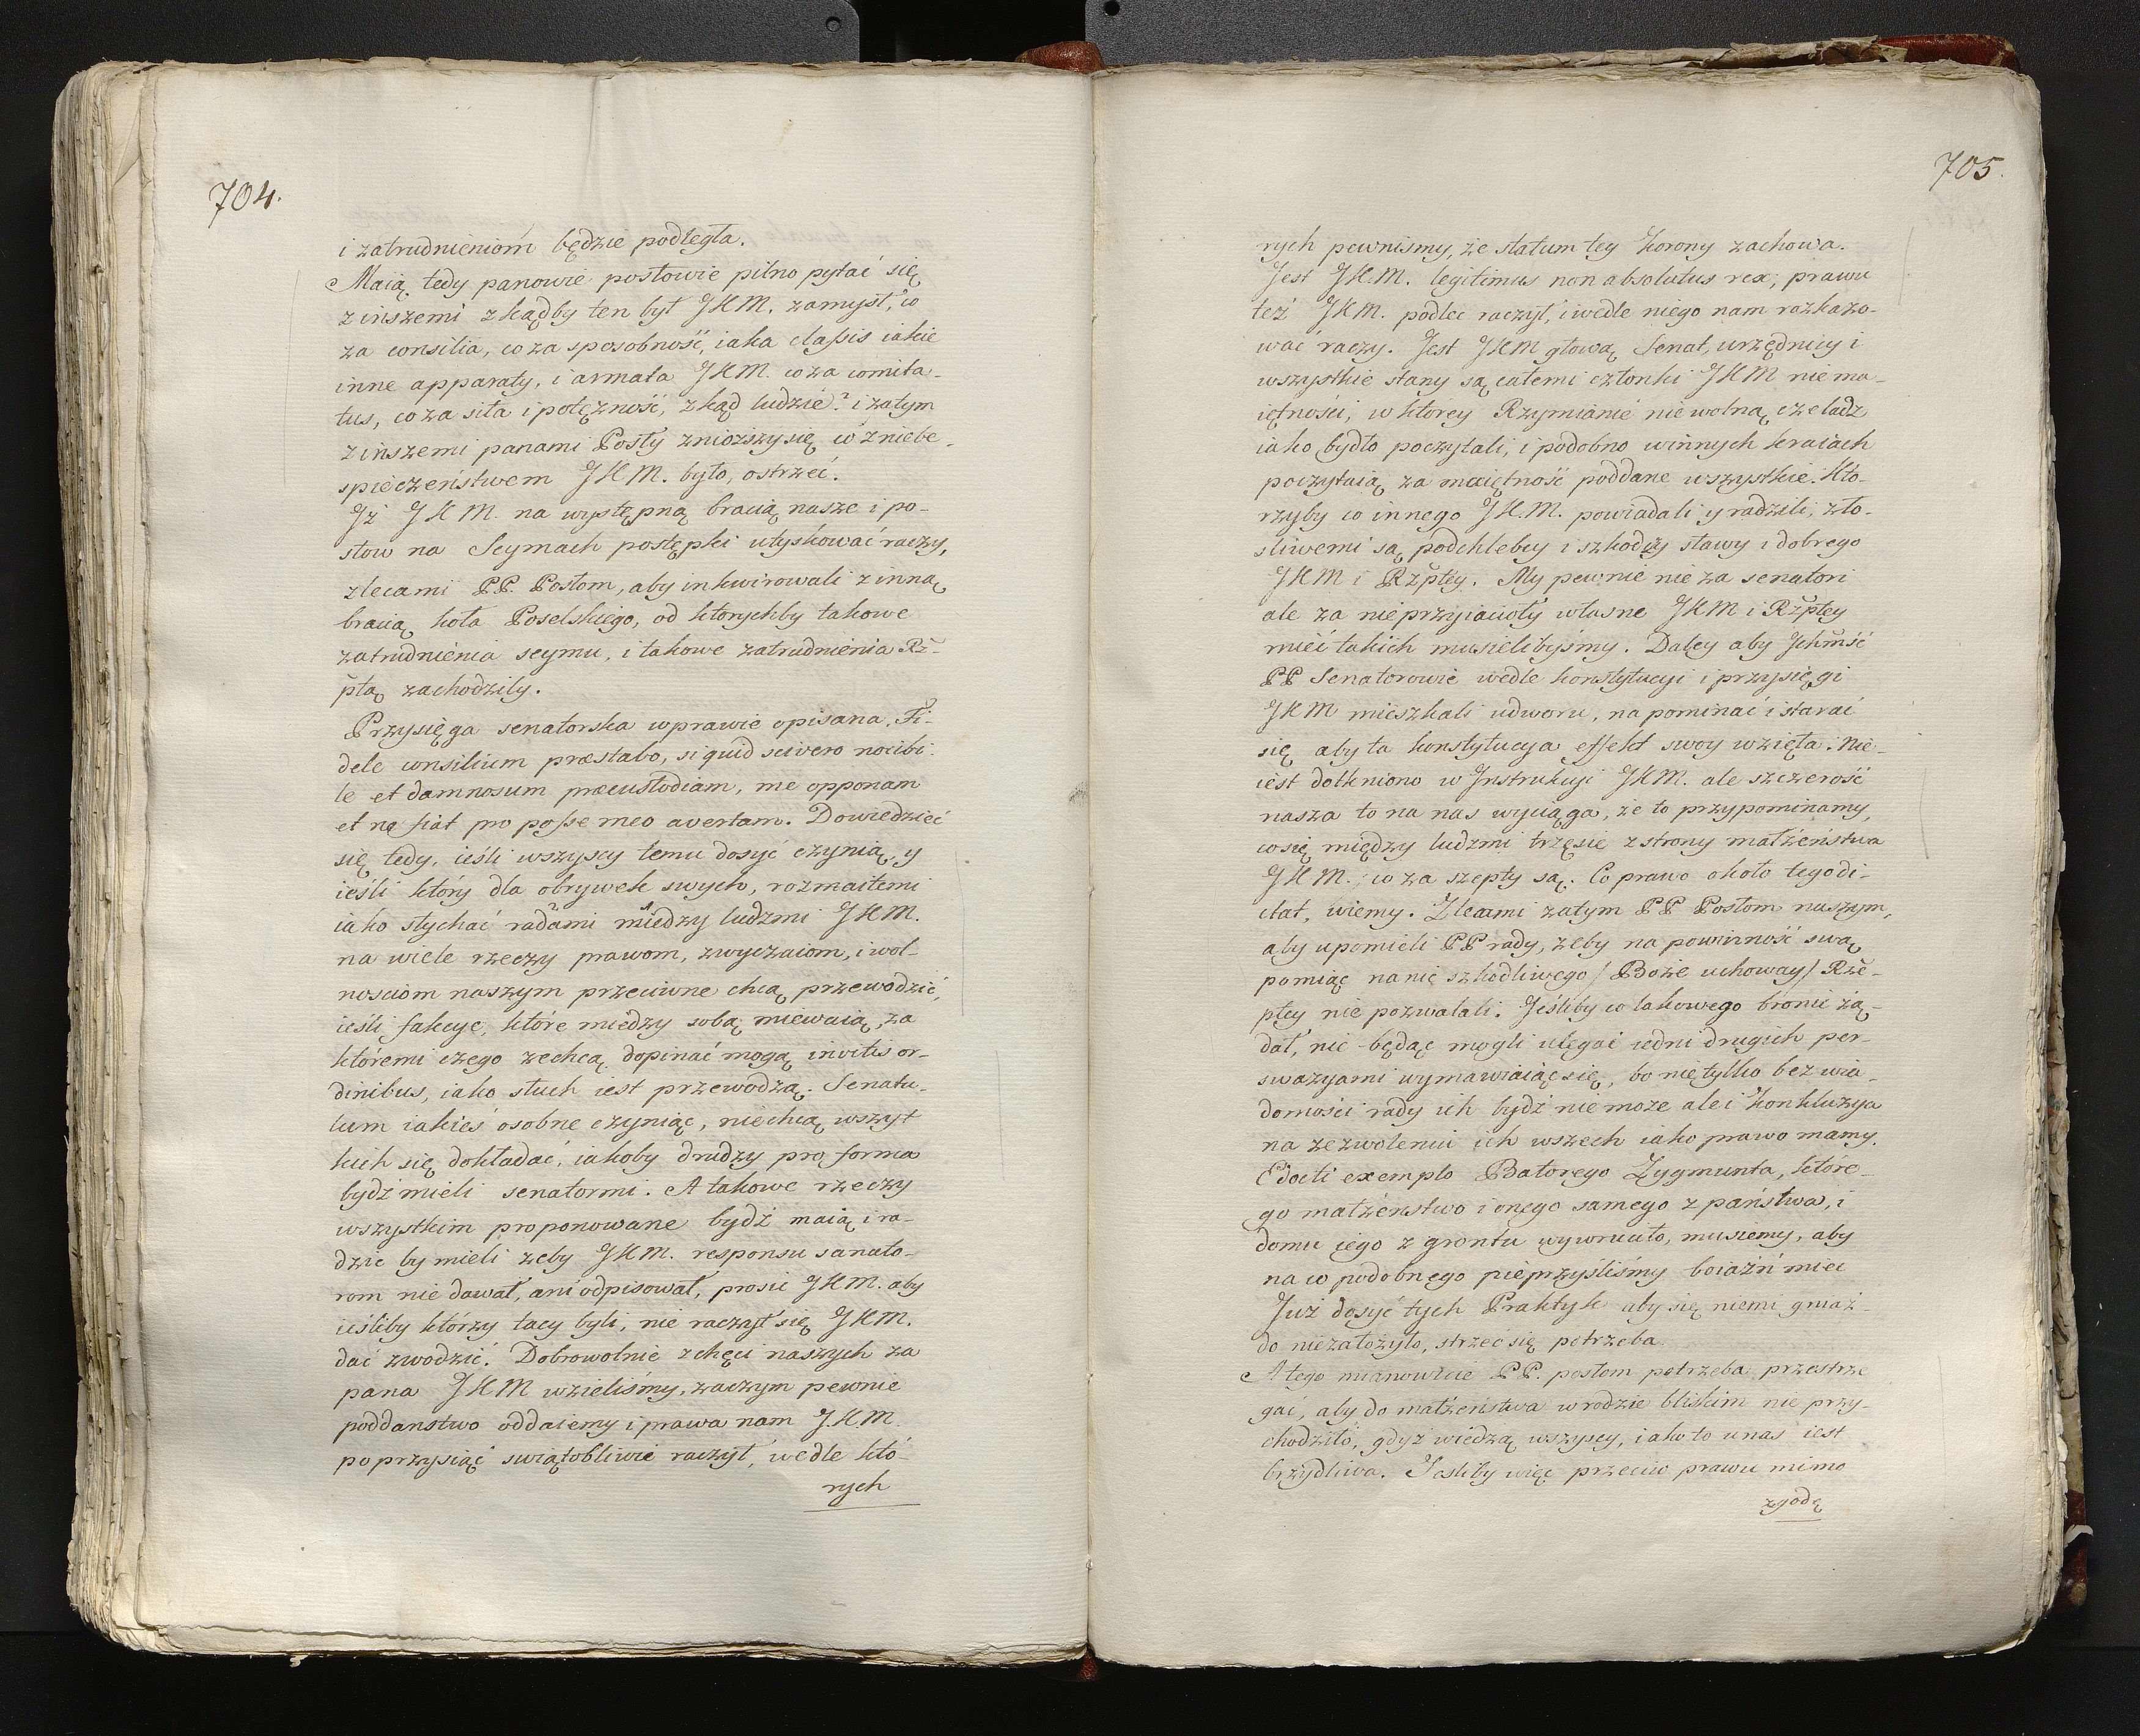 704.
i zatrudnieniom będzie podległa.
Maią tedy panowie posłowie pilno pytać się
z inszemi zkądby ten był JKM. zamysł, co
za consilia, co za sposobność, iaka classis iakie
inne apparaty, i armata JKM. co za comita-
tus, co za siła i potężność, zkąd ludzie? i zatym
z inszemi panami Posły zniozszy się co z niebe-
spieczeństwem JKM. było, ostrzec.
Iż JKM. na występną bracią nasze i po-
słow na Seymach postępki utyskować raczy,
zlecami PP. Posłom, aby inkwirowali z inną
bracią koła Poselskiego, od ktorychby takowe
zatrudnienia seymu, i takowe zatrudnienia Rz-
ptą zachodziły.
Przysięga senatorska w prawie opisana, Fi-
dele consilium præstabo, si quid scivero nocibi-
le et damnosum præcustodiam, me opponam
et ne fiat pro posse meo avertam. Dowiedzieć
się tedy, ieśli wszyscy temu dosyć czynią, y
ieśli który dla obrywek swych, rozmaitemi
iako słychać radami między ludzmi JKM.
na wiele rzeczy prawom, zwyczaiom, i wol-
nosciom naszym przeciwne chcą przewodzić,
ieśli fakcye, które między sobą miewaią, za
któremi czego zechcą dopinać mogą invitis or-
dinibus, iako słuch iest przewodzą. Senatu-
lum iakieś osobne czyniąc, niechcą wszyt
kich się dokładać, iakoby drudzy pro forma
bydź mieli senatormi. A takowe rzeczy
wszystkim proponowane bydź maią i ra-
dzić by mieli zeby JKM. responsu sanato-
rom nie dawał, ani odpisował, prosić JKM. aby
ieśliby którzy tacy byli, nie raczył się JKM.
dać zwodzić. Dobrowolnie z chęci naszych za
pana JKM wzieliśmy, zaczym pewnie
poddanstwo oddaiemy i prawa nam J.K.M.
poprzysiąc swiątobliwie raczył, wedle któ-
rych
705.
rych pewnismy, że statum tey Korony zachowa.
Jest JKM. legitimus non absolutus rex; prawu
też JKM. podlec raczył, i wedle niego nam rozkazo-
wać raczy. Jest JKM głową, Senat, urzędnicy i
wszystkie stany są całemi członki JKM nie ma-
iętności, w którey Rzymianie niewolną czeladz
iako bydło poczytali, i podobno w innych kraiach
poczytaią za maiętność poddane wszystkie. Kto-
rzyby co innego JK.M. powiadali y radzili, zło-
śliwemi są, podchlebcy i szkodzy sławy i dobrego
JKM i Rzptey. My pewnie nie za senatori
ale za nieprzyiacioły własne JKM i Rzptey
mieć takich musielibyśmy. Daley aby Ichmść
PP Senatorowie wedle konstytucyi i przysięgi
JKM mieszkali u dworu, napominać i starać
się aby ta konstytucya effekt swoy wzięła. Nie-
iest dotkniono w Instrukcyi JKM. ale szczerość
nasza to na nas wyciąga, że to przypominamy,
co się między ludzmi trzęsie z strony małżeństwa
JKM.; co za szepty są. Co prawo około tego di-
ctat, wiemy. Zlecami zatym PP Posłom naszym,
aby upomieli PP rady, żeby na powinność swą
pomiąc na nic szkodliwego / Boże uchoway / Rze-
ptey nie pozwalali. Jeśliby co takowego bronić żą-
dał, nie będąc mogli ulegać iedni drugich per-
swazyami wymawiaiąc się, bo nie tylko bez wia-
domości rady ich bydź nie może ale i konkluzya
na zezwoleniu ich wszech iako prawo mamy.
Edocti exemplo Batorego Zygmunta, które-
go małżeństwo i onego samego z państwa, i
domu iego z gruntu wywruciło, musiemy, aby
na co podobnego nieprzyszliśmy boiaźń mieć
Już dosyć tych Praktyk aby się niemi gniaz-
do niezałożyło, strzec się potrzeba.
A tego mianowicie PP. posłom potrzeba przestrze
gać, aby do małżeństwa w rodzie bliskim nie przy-
chodziło, gdyż wiedzą wszyscy, iako to u nas iest
brzydliwa. Jesliby więc przeciw prawu mimo
zgodę